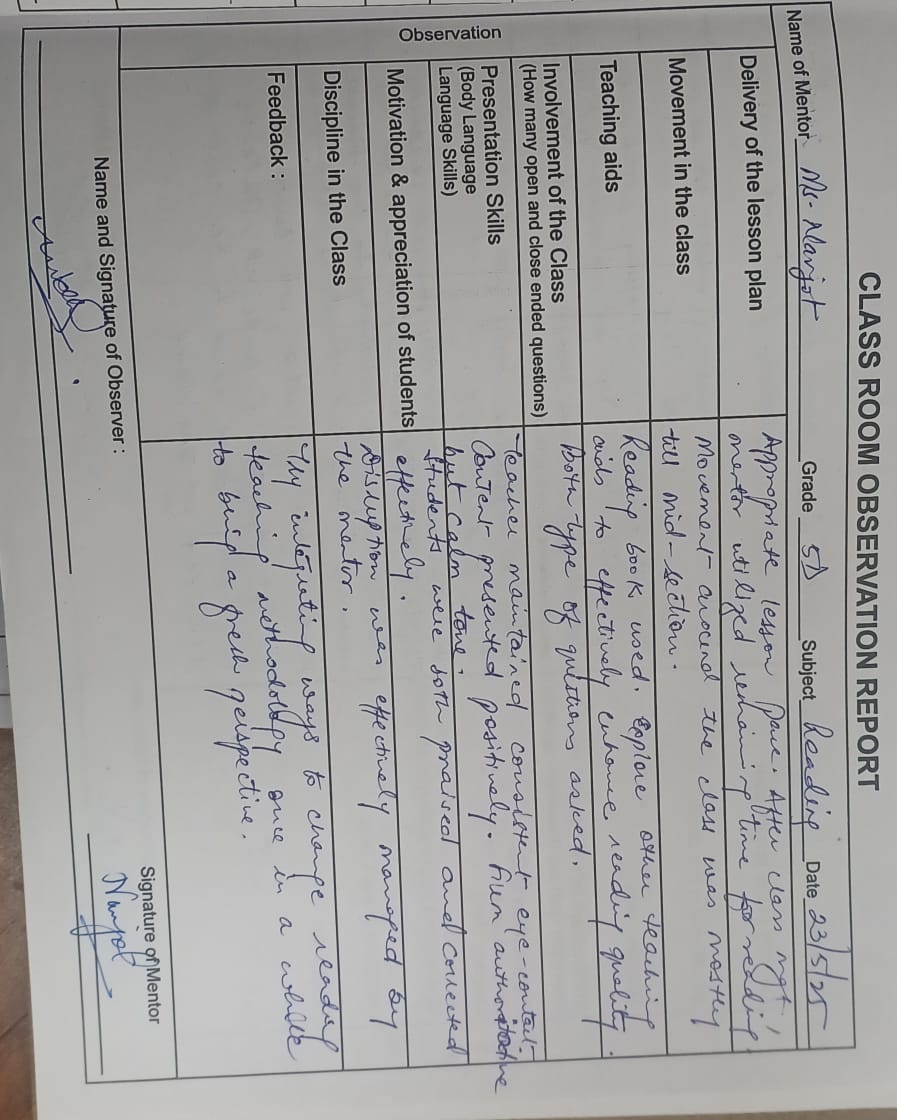 CLASS ROOM OBSERVATION REPORT
Name of Mentor Ms. Manjot Grade 5D Subject Reading Date 23/5/25
Observation
Delivery of the lesson plan
Appropriate lesson pace. After class mgt,
mentor utilized remaining time for reading.
Movement in the class
Movement around the class was mostly
till mid-section.
Teaching aids
Reading book used. Explore other teaching
aids to effectively enhance reading quality.
Involvement of the Class
(How many open and close ended questions)
Both type of questions asked.
Presentation Skills
(Body Language
Language Skills)
Teacher maintained consistent eye-contact.
Content presented positively. Firm authoritative
but calm tone.
Motivation & appreciation of students
Students were both praised and corrected
effectively.
Discipline in the Class
Disruption was effectively managed by
the mentor.
Feedback :
Try integrating ways to change reading
teaching methodology once in a while
to bring a fresh perspective.
Name and Signature of Observer :
Signature of Mentor
Manjot